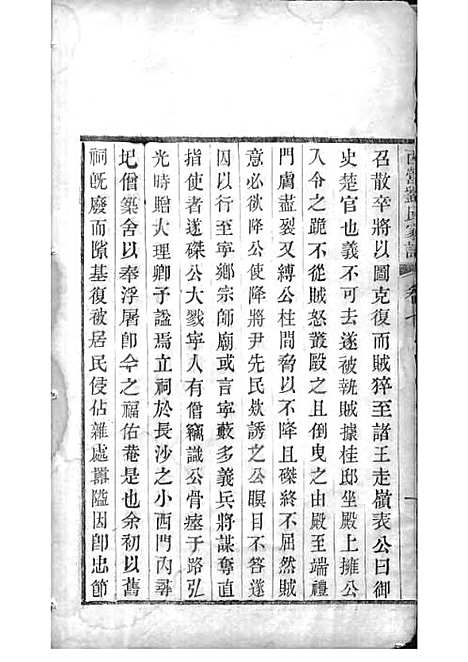 西營劉氏家譜 卷
召散卒將以圖克復而賊猝至諸王走嶺表公曰御
史楚官也義不可去遂被執賊據桂邸坐殿上擁公
入令之跪不從賊怒叢毆之且倒曳之由殿至端禮
門膚盡裂又縛公柱間脅以不降且磔終不屈然賊
意必欲降公使降將尹先民欸誘之公瞑目不答遂
囚以行至寧鄉宗師廟或言寧藪多義兵將謀奪直
指使者遂磔公大戮寧人有僧竊識公骨瘞于路弘
光時贈大理卿子謚焉立祠於長沙之小西門內尋
圯僧築舍以奉浮屠卽今之福佑菴是也余初以舊
祠旣廢而隙基復被居民侵佔雜處囂隘因卽忠節